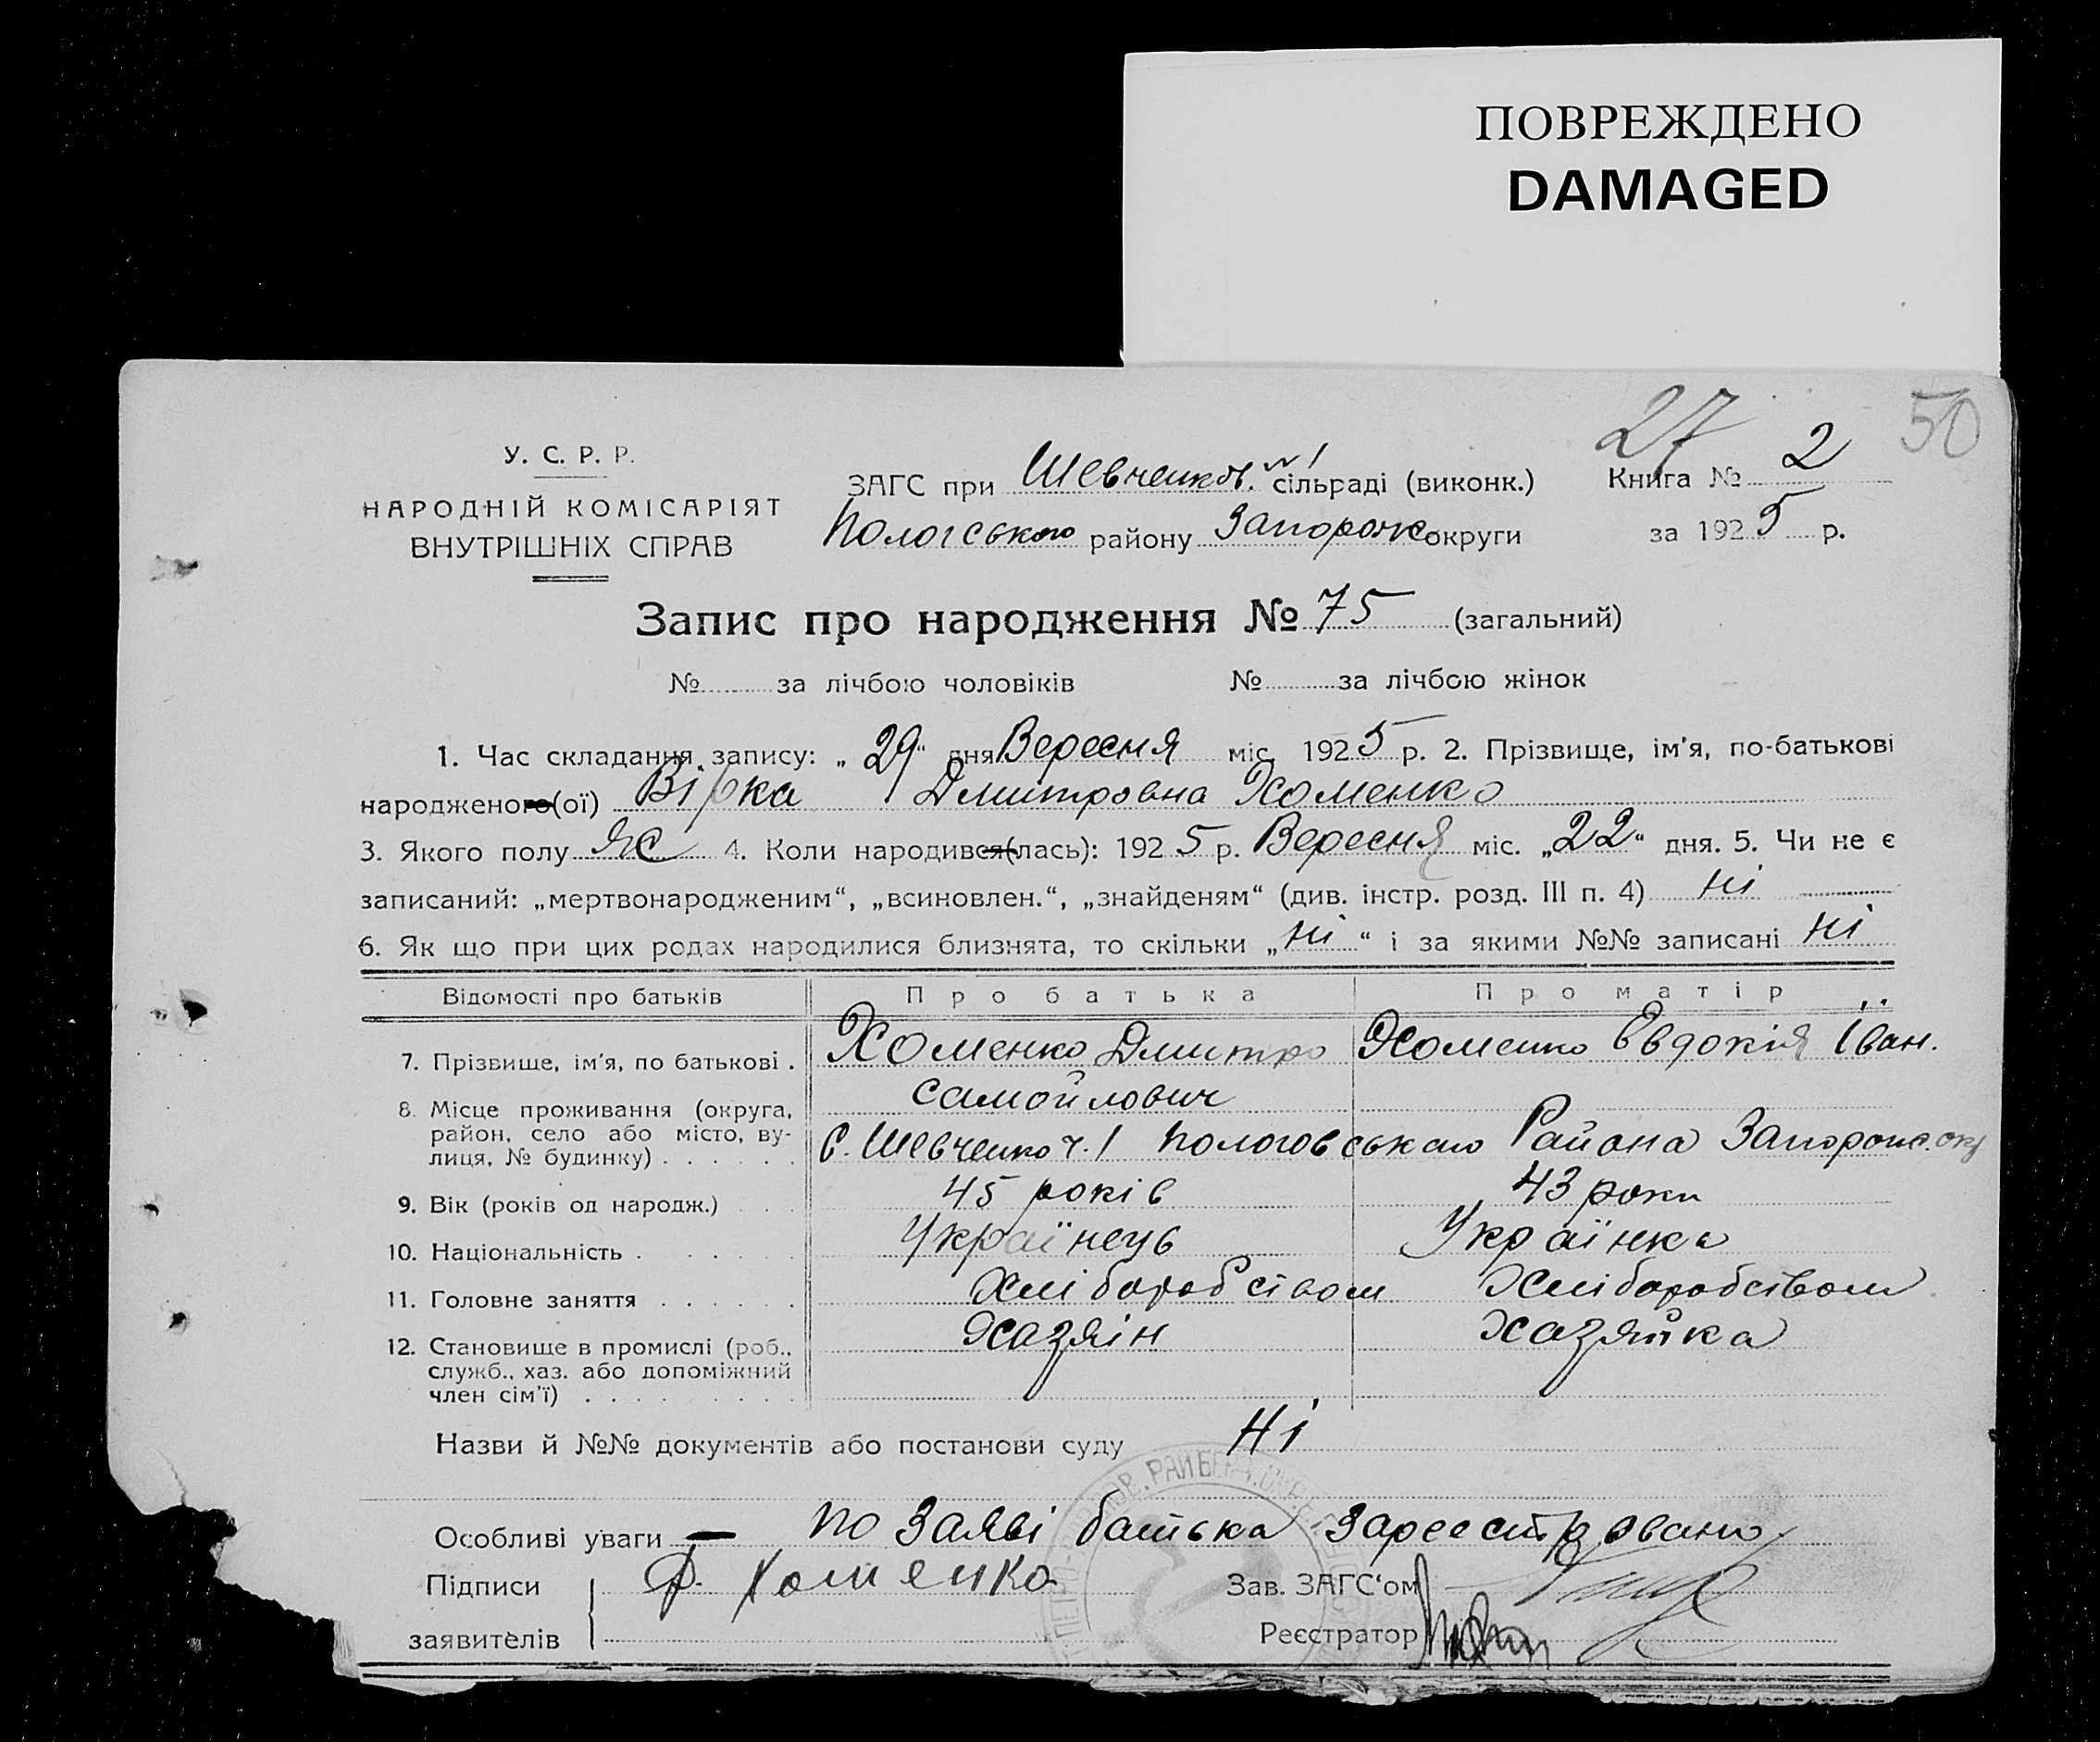 ПОВРЕЖДЕНО
DAMAGED
27 50
У. С. Р. Р.
НАРОДНІЙ КОМІСАРІЯТ
ВНУТРІШНІХ СПРАВ
ЗАГС при Шевченков. №1 сільраді (виконк.) Книга № 2
Пологського району Запорож округи за 1925 р.
Запис про народження № 75 (загальний)
№ за лічбою чоловіків № за лічбою жінок
1. Час складання запису: „29“ дня Вересня міс. 1925 р. 2. Прізвище, ім'я, по-батькові
народженого(ої) Дмитровна Хоменко
3. Якого полу Ж 4. Коли народився(лась): 1925 р. Вересня міс. „22“ дня. 5. Чи не є
записаний: „мертвонародженим“, „всиновлен.“, „знайденям“ (див. інстр. розд. III п. 4) ні
6. Як що при цих родах народилися близнята, то скільки „ні“ і за якими №№ записані ні
Відомості про батьків Про батька Про матір
7. Прізвище, ім'я, по батькові . Хоменко Дмитро Самойлович Хоменко Евдокія Іван.
8. Місце проживання (округа,
район, село або місто, ву-
лиця, № будинку) . . . . . . С. Шевченко ч. 1 Пологовського Района Запорож. окр
9. Вік (років од народж.) . . . 45 років 43 роки
10. Національність . . . . . . Українець Українка
11. Головне заняття . . . . . . Хліборобством Хліборобством
12. Становище в промислі (роб.,
служб., хаз. або допоміжний
член сім'ї) . . . . . . . . Хазяїн Хазяйка
Назви й №№ документів або постанови суду Ні
Особливі уваги — по Заяві батька зареєстровано
Підписи Д. Хоменко Зав. ЗАГС'ом
заявителів Реєстратор